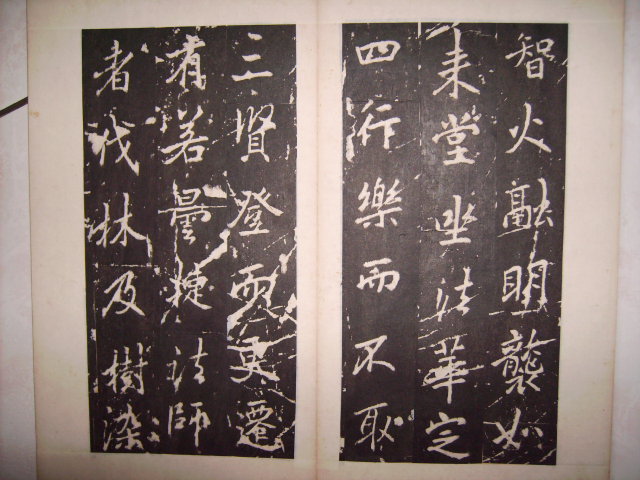 智火融明襲如
来堂坐法華定
四行樂而不取
三賢登而更遷
有若曇捷法師
者伐林及樹染